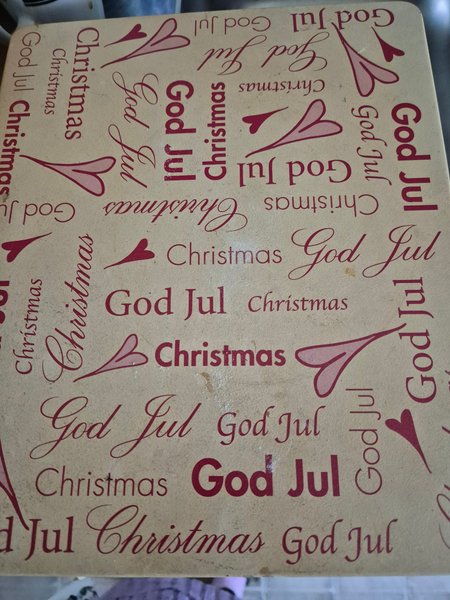 God Jul
Christmas
God Jul
God Jul
Christmas
Christmas
God Jul
God Jul
Christmas
God Jul
God Jul
Christmas
God Jul
God Jul
Christmas
Christmas
Christmas God Jul
Christmas
Christmas
God Jul Christmas
God Jul
Christmas
God Jul God Jul
God Jul
Christmas God Jul
Jul Christmas God Jul